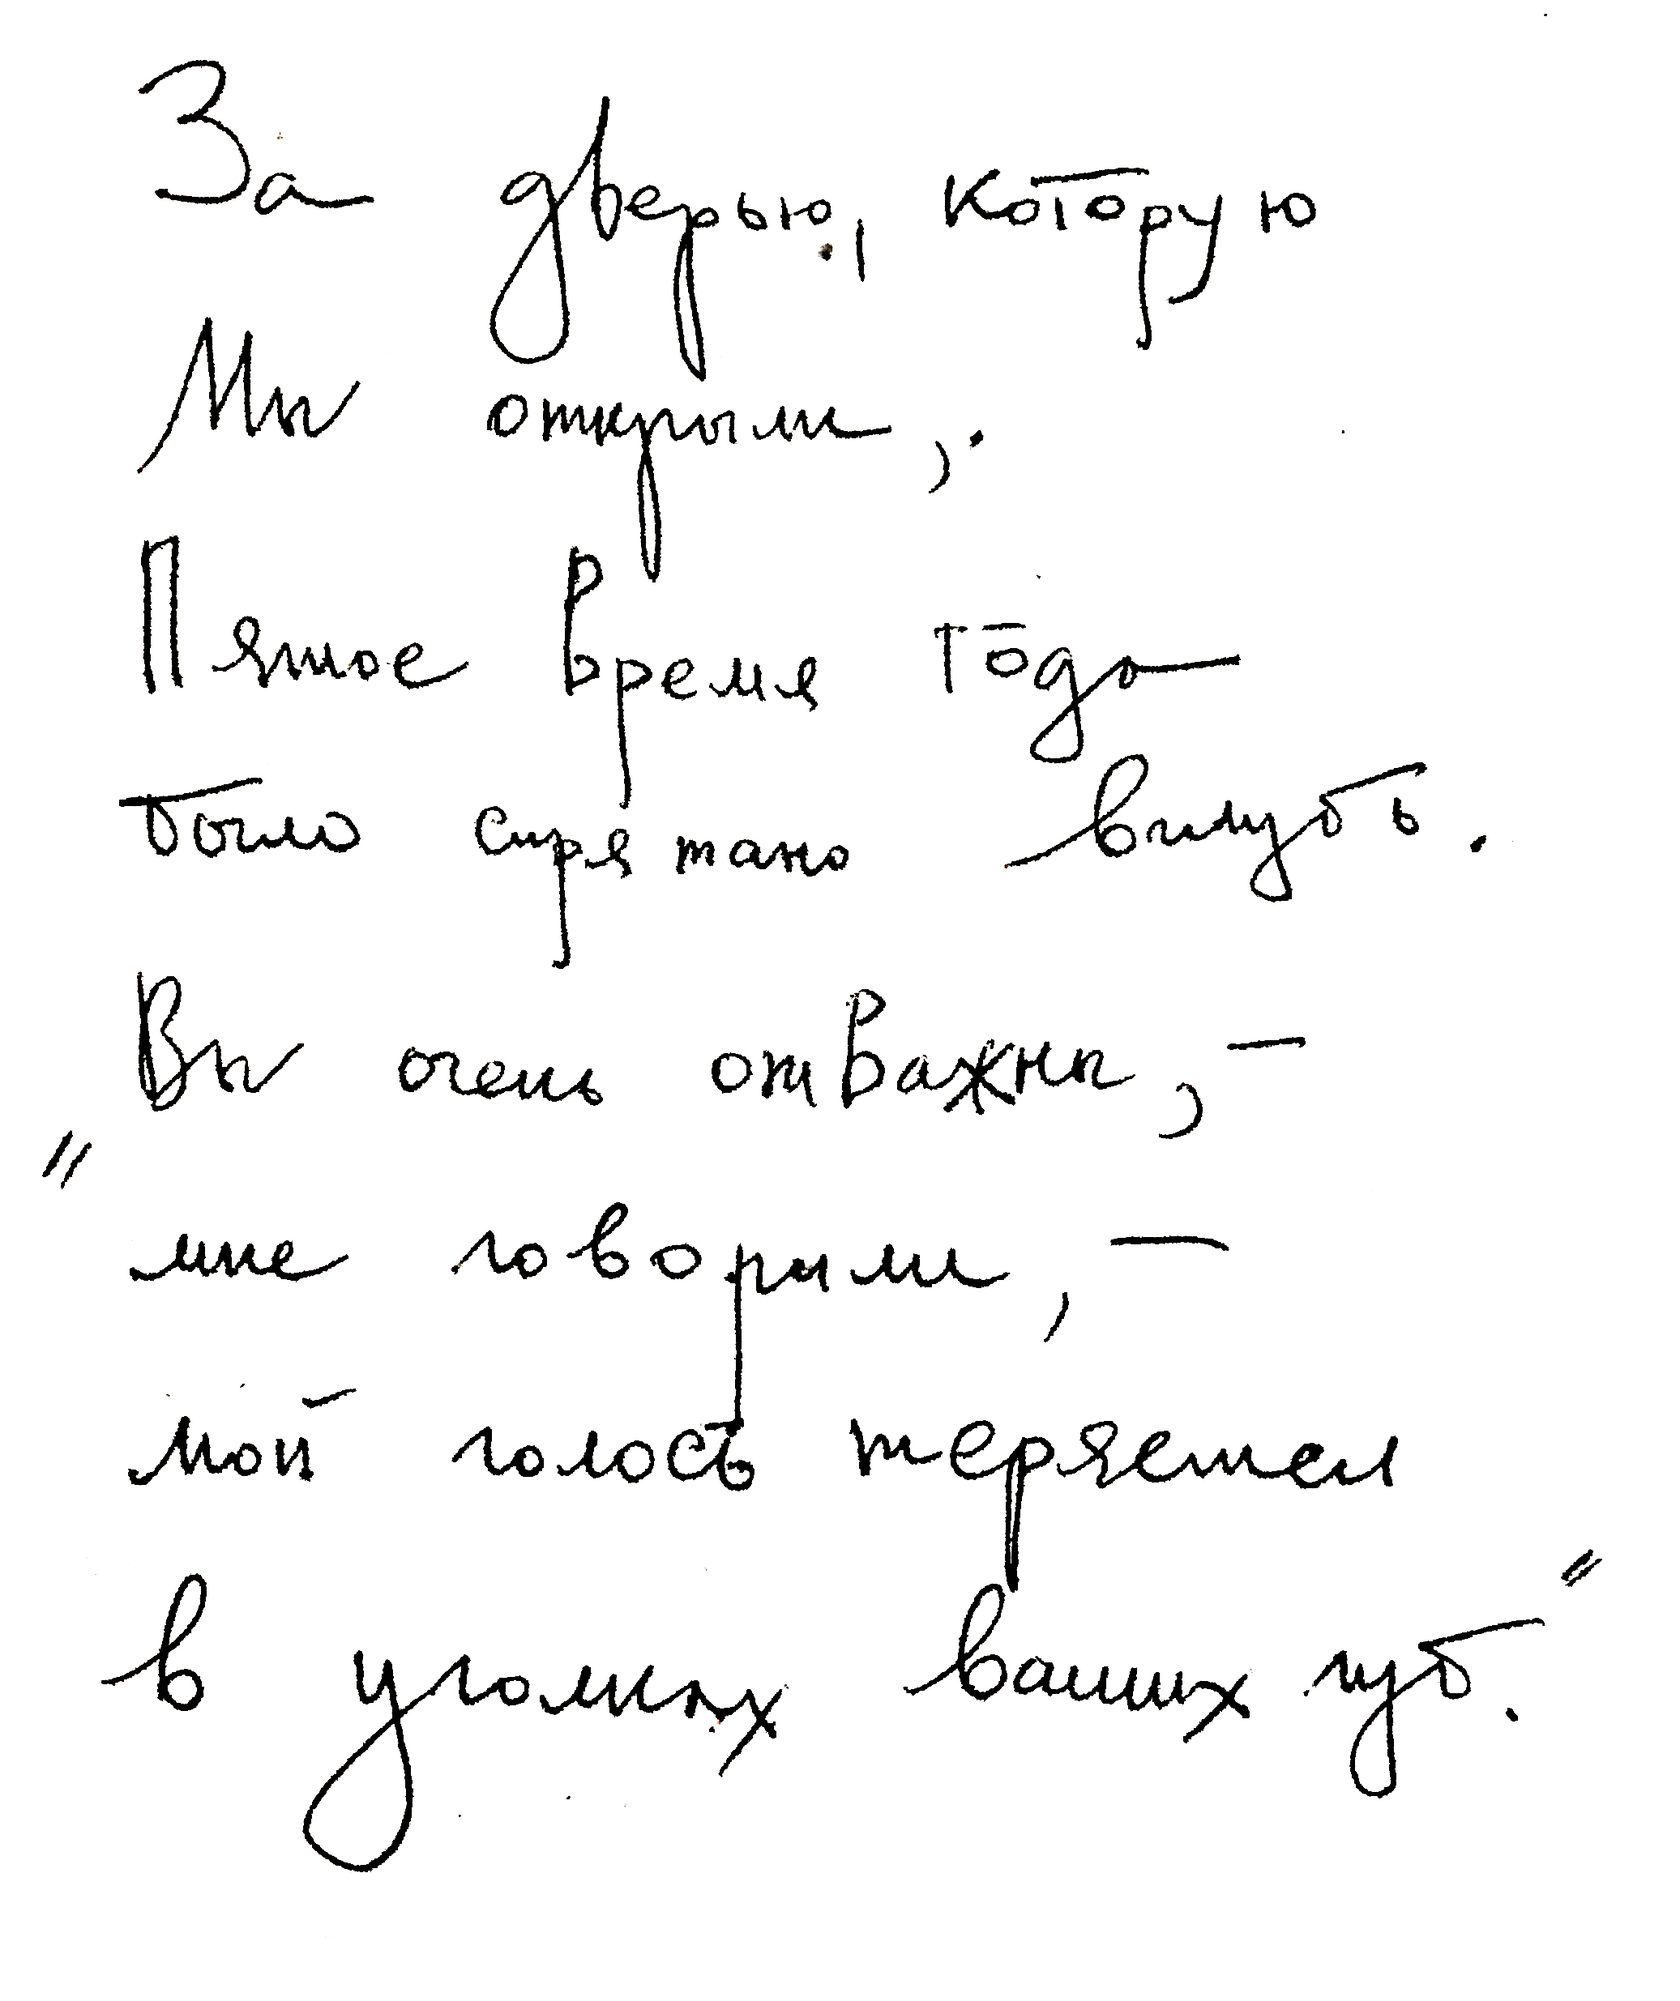 За дверью, которую
Мы открыли,
Пятое время года
было спрятано вглубь.
Вы очень отважны, –
"мне говорили, –
мой голосъ теряется
в уголках ваших губ."